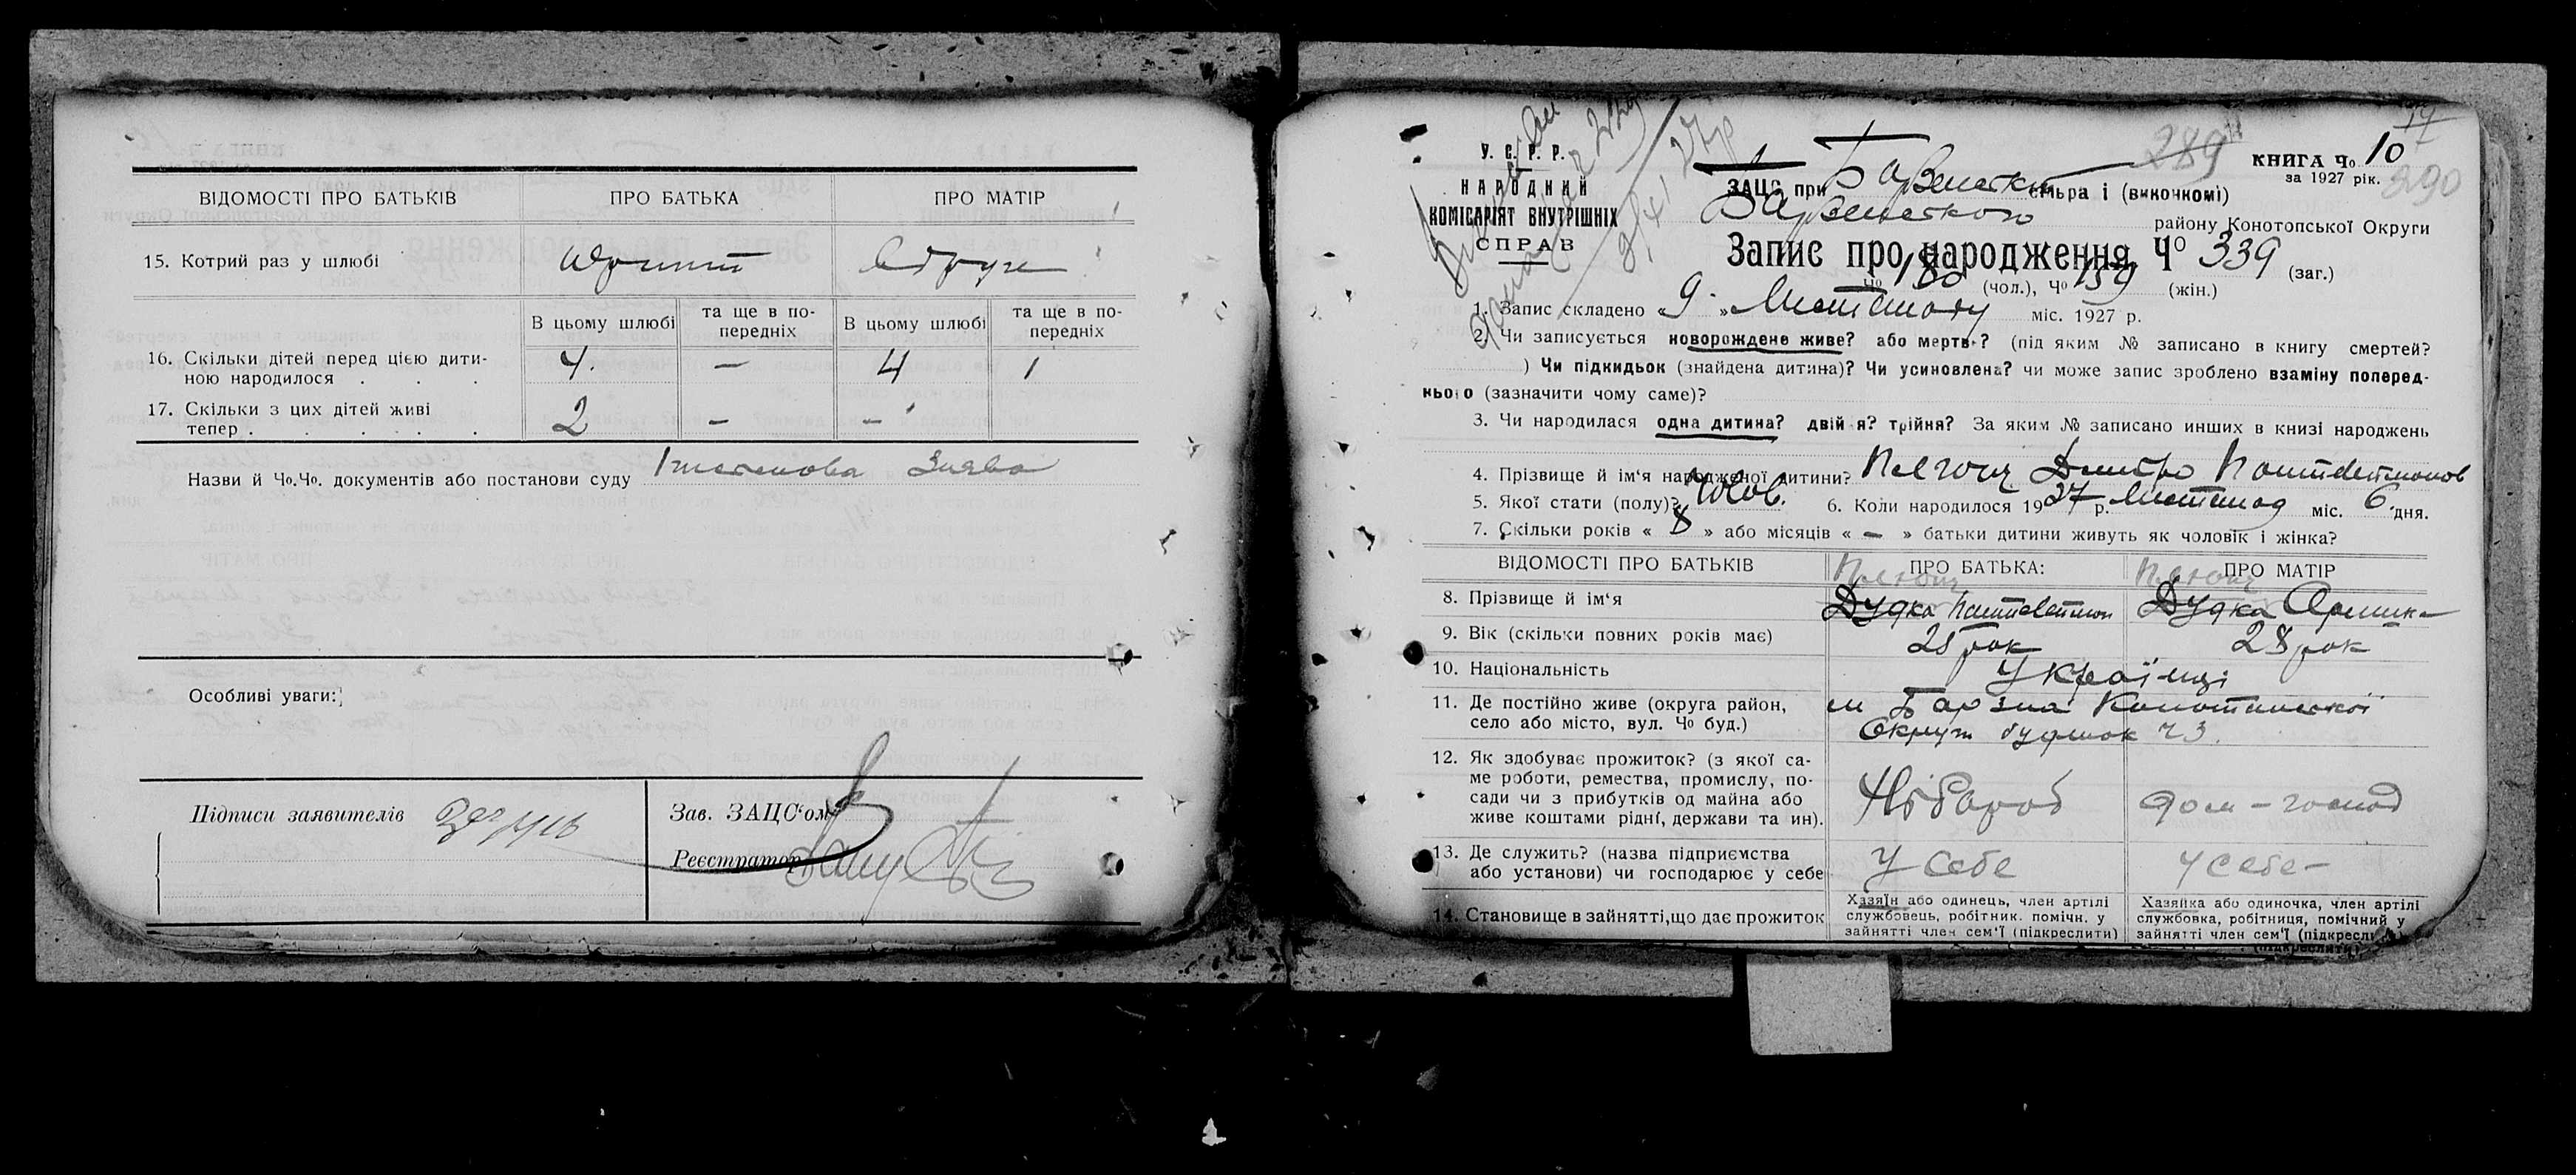 ВІДОМОСТІ ПРО БАТЬКІВ ПРО БАТЬКА ПРО МАТІР
15. Котрий раз у шлюбі
В цьому шлюбі та ще в по-передніх В цьому шлюбі та ще в по-передніх
16. Скільки дітей перед цією дити-
ною народилося . . . 4. — 4 1
17. Скільки з цих дітей живі
тепер . . . . . . 2 — —
Назви й Чо.Чо. документів або постанови суду Заява
Особливі уваги:
Підписи заявителів
Зав. ЗАЦС‘ом
Реєстратор
У. С. Р. Р.
НАРОДНИЙ
КОМІСАРІЯТ ВНУТРІШНІХ
СПРАВ
289
КНИГА Чо 10
за 1927 рік.
290
ЗАЦС при
Борзенського району Конотопської Округи
Запис про народження Чо 339 (заг.)
Чо 180 (чол.), Чо 159 (жін.)
1. Запис складено « 9 » Листопаду міс. 1927 р.
2. Чи записується новорождене живе? або мертве? (під яким № записано в книгу смертей?
) Чи підкидьок (знайдена дитина)? Чи усиновлена? чи може запис зроблено взаміну поперед-
нього (зазначити чому саме)?
3. Чи народилася одна дитина? двійня? трійня? За яким № записано инших в книзі народжень
4. Прізвище й ім‘я народженої дитини? Дмитро
5. Якої стати (полу)? чолов. 6. Коли народилося 1927 р. Листопад міс. 6 дня.
7. Скільки років « 8 » або місяців « — » батьки дитини живуть як чоловік і жінка?
ВІДОМОСТІ ПРО БАТЬКІВ ПРО БАТЬКА: ПРО МАТІР
8. Прізвище й ім‘я Дудка Дудка
9. Вік (скільки повних років має) рок 28 рок
10. Національність Українці
11. Де постійно живе (округа район,
село або місто, вул. Чо буд.) м Борзна Конотопської
Округи будинок ч 3.
12. Як здобуває прожиток? (з якої са-
ме роботи, ремества, промислу, по-
сади чи з прибутків од майна або
живе коштами рідні, держави та ин). Хлібороб дом – господ
13. Де служить? (назва підприємства
або установи) чи господарює у себе У себе у себе –
14. Становище в зайнятті, що дає прожиток
Хазяїн або одинець, член артілі
службовець, робітник. помічн. у
зайнятті член сем‘ї (підкреслити)
Хазяйка або одиночка, член артілі
службовка, робітниця, помічний у
зайнятті член сем‘ї
(підкреслити)